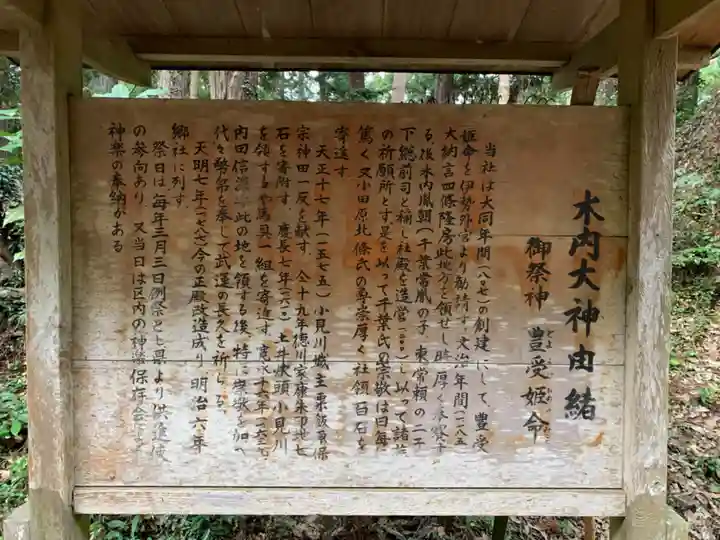 木内大神由緒
御祭神 豊受姫命
とようけひめのみこと
当社は大同年間(八〇七)の創建にして、豊受
姫命を伊勢外宮より勧請す。文治年間(一一八五)
大納言四條隆房此地方を領せし時厚く
る。後木内胤朝(千葉常胤の子、東常頼の二子
下総前司と称し社殿を造営し以って諸社
の祈願所とす是を以って千葉氏の崇敬は日毎に
篤く又小田原北條氏の尊崇厚く社領百石を
寄進す
天正十七年(一五七五)小見川城主粟飯原保
宗神田一反を献ず、仝十九年徳川家康朱印地七
石を寄附す、慶長七年(一六〇二)土井大頭小見川
を領するや馬具一組を寄進す。寛永十六年
内田信濃守此の地を領する後、特に崇敬を加へ
代々幣帛を奉して武運の長久を祈らる。
天明七年(一七八七)今の正殿改造成り 明治六年
郷社に列す。
祭日は毎年三月三日例祭とし県より供進使
の参向あり、又当日は区内の神楽保存会による
神楽の奉納がある